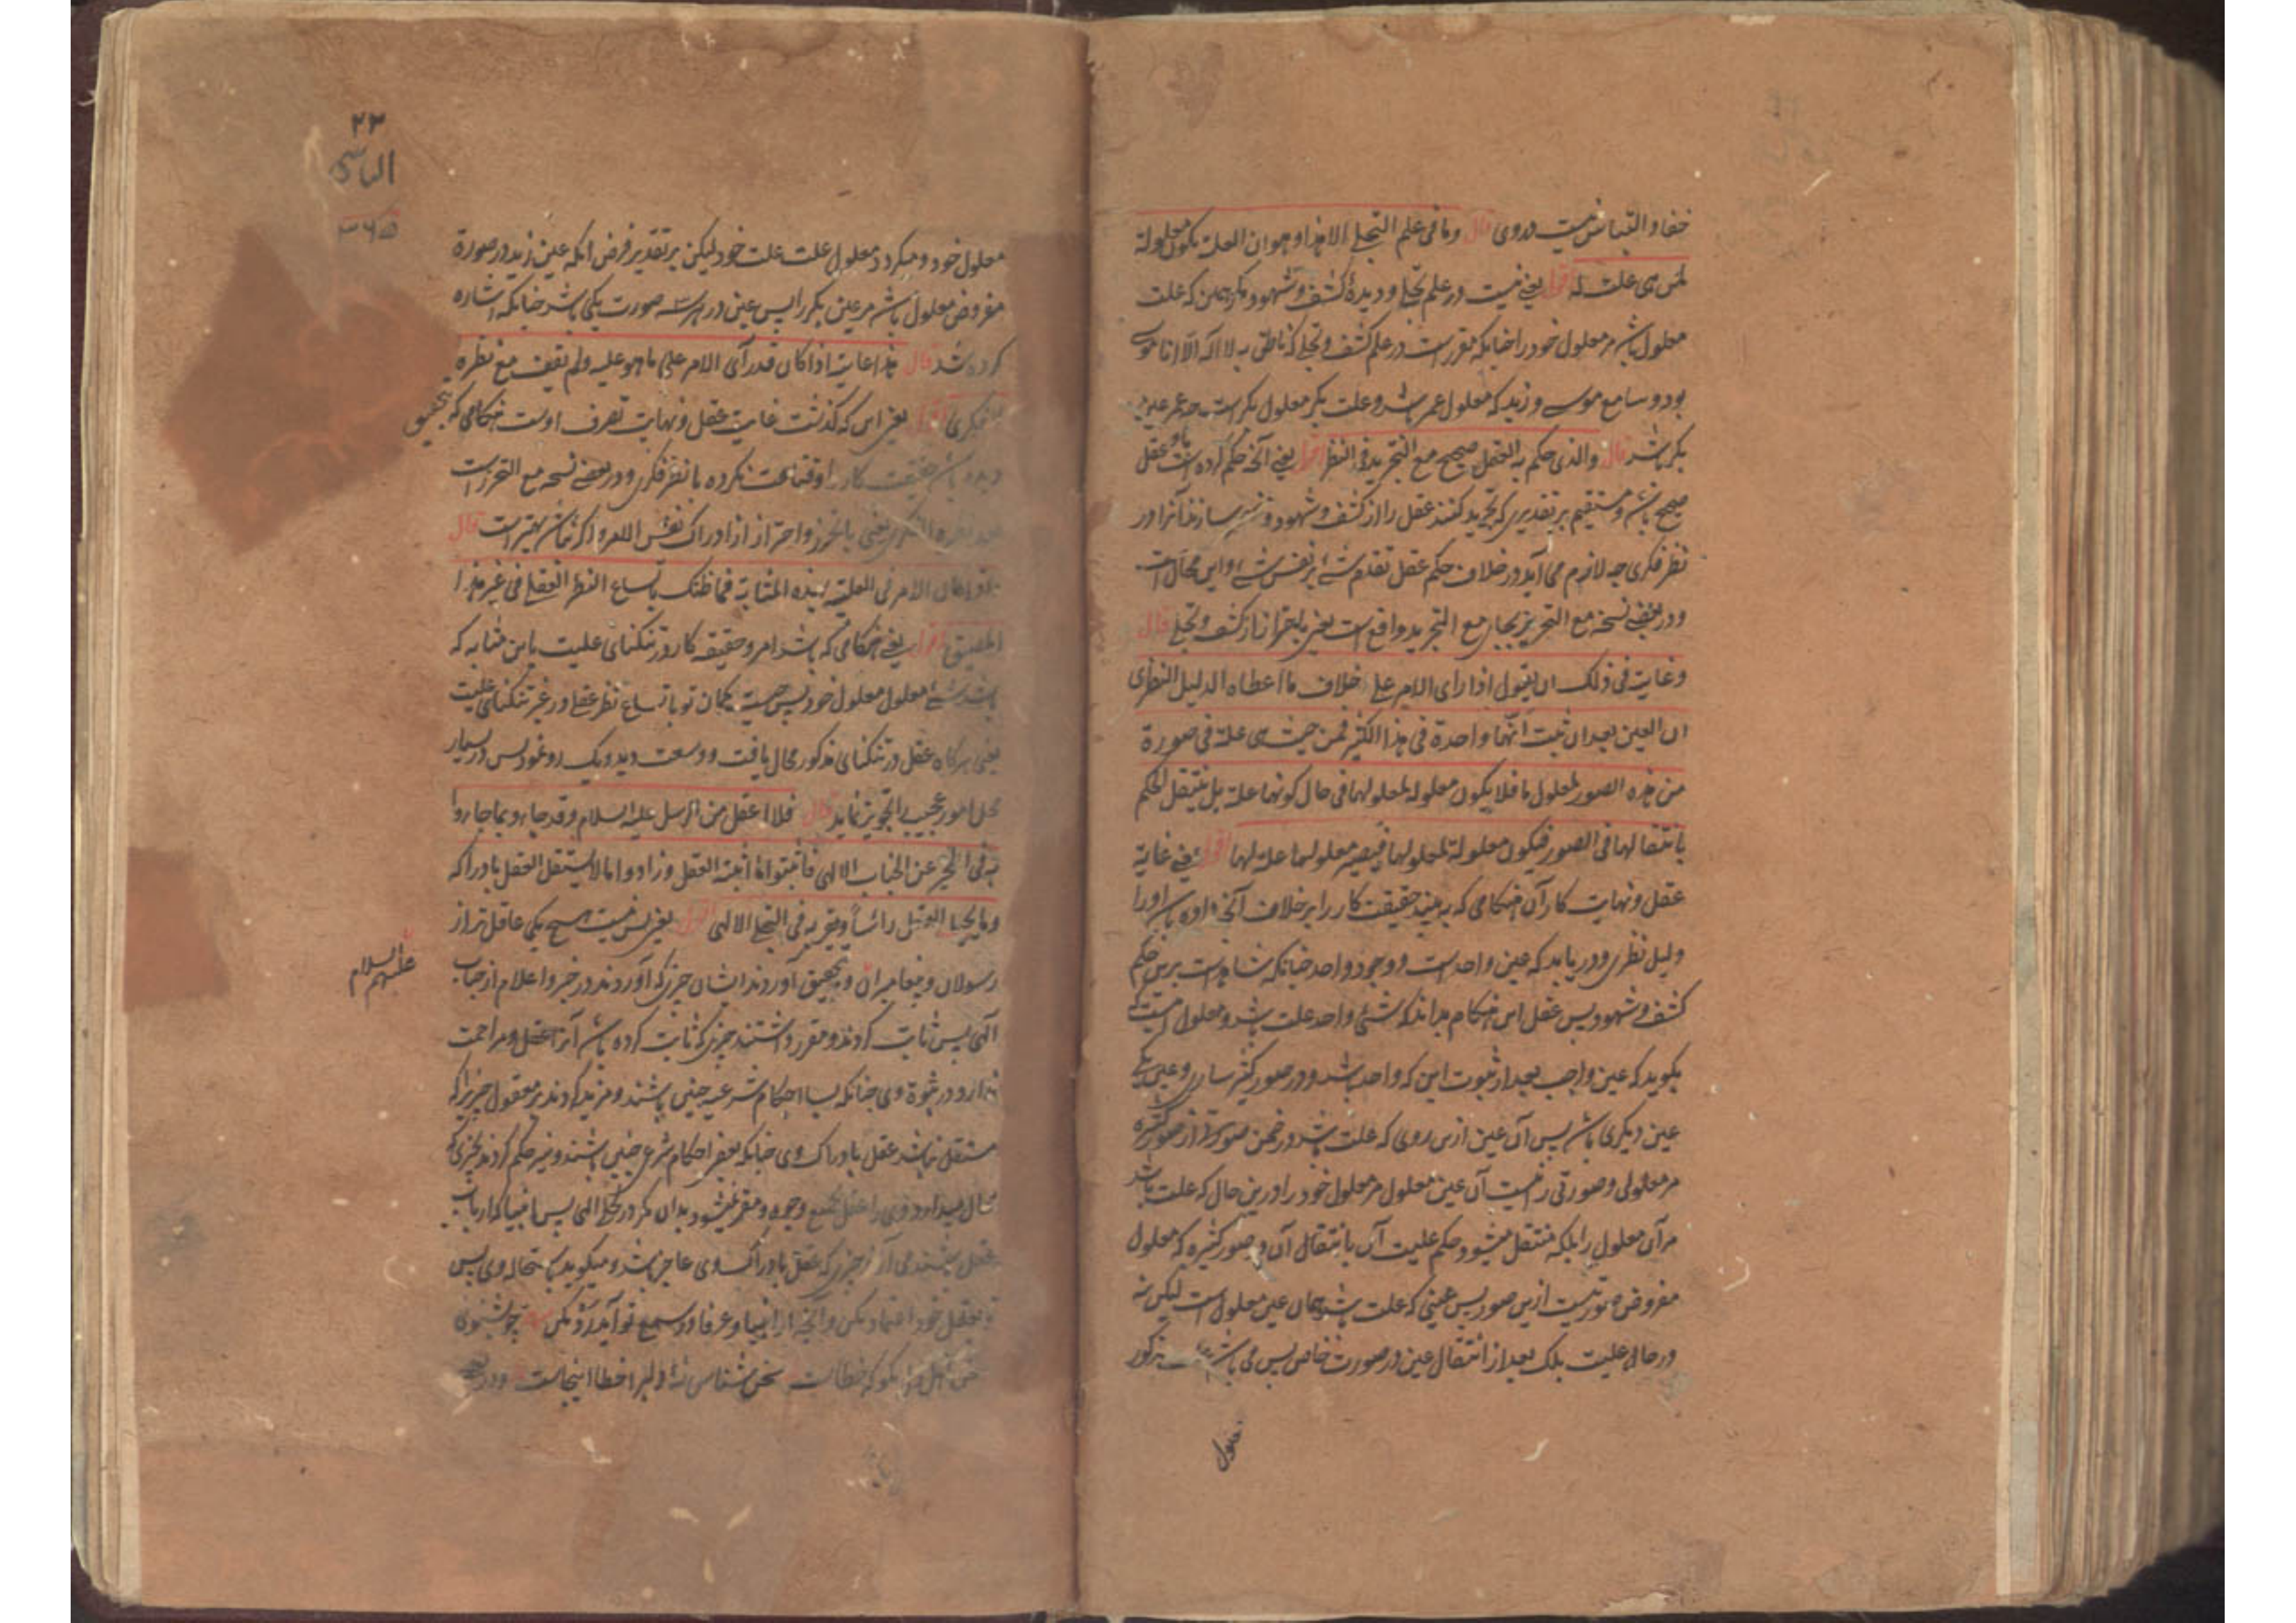 خفا و التباس نیست دروی قال و ما فی علم التجلی الا هذا و هو ان العلة یکون معلولة
لمن هی علت له اقول یعنی نیست در علم تجلی و دیدهٔ کشف و شهود مکر همین که علت
معلول باشد مر معلول خود را چنانکه مقرر است در علم کشف و تجلی که ناطق به لا اله الا انا موسی
بود و سامع موسی و زید که معلول عمر باشد و علت بکر معلول بکر است چه عمر عین
بکر باشد قال و الذی حکم به العقل صحیح مع التجرید فی النظر اقول یعنی آنچه حکم کرده است باو عقل
صحیح باشد و مستقیم بر تقدیری که تجرید کنند عقل را از کشف و شهود و سازند آنرا در
نظر فکری چه لازم می آید در خلاف حکم عقل تقدم شیٔ بر نفس شیٔ و این محال است
و در بعضی نسخه مع التحریز بجای مع التجرید واقع است یعنی باحتراز از کشف و تجلی قال
و غایته فی ذلک ان یقول اذا رای الامر علی خلاف ما اعطاه الدلیل النظری
ان العین بعد ان ثبت انها واحدة فی هذا الکثیر فمن حیث هی علة فی صورة
من هذه الصور لمعلول ما فلا یکون معلولة لمعلولها فی حال کونها علة بل ینتقل الحکم
بانتقالها فی الصور فیکون معلولة لمعلولها فیصیر معلولها علة لها اقول یعنی غایة
عقل و نهایت کار آن هنکامی که به بیند حقیقت کار را بر خلاف آنچه داده باشد او را
دلیل نظری و دریابد که عین واحد است و وجود واحد چنانکه شاهد است برین حکم
کشف و شهود پس عقل این هنکام بداند که شیٔ واحد علت باشد و معلول
بکوید که عین واجب بعد از ثبوت این که واحد باشد و در صور کثیر ساری و عین یکی
عین دیکری باشد پس آن عین ازین روی که علت باشد در ضمن صورتی از صور کثیره
مر معلولی و صورتی را نیست آن عین معلول مر معلول خود را درین حال که علت باشد
مر آن معلول را بلکه منتقل میشود حکم علیت آن بانتقال آن در صور کثیره که معلول
مفروض صورتیست ازین صور پس عینی که علت باشد همان عین معلول است لیکن نه
در حالی علیت بلک بعد از انتقال عین در صورت خاص پس می باشد مذکور
معلول
۲۳
۳۶۵
معلول خود و میکردد معلول علت علت خود لیکن بر تقدیر فرض انکه عین زید در صورة
مفروض معلول باشد مر عین بکر را پس عین در هر سه صورت یکی باشد چنانکه اشاره
کرده شد قال هذا غایته اذا کان قد رآی الامر علی ما هو علیه و لم یقف مع نظره
الفکری اقول یعنی این که کذشت غایت عقل و نهایت تصرف اوست هنکامی که
بتحقیق
دیده باشد حقیقت کار را و قناعت نکرده با نظر فکری و در بعضی نسخه مع التحرز است
یعنی با تحرز و احتراز از ادراک نفس الامر و اکر بهتر است قال
و اذا کان الامر فی العلیة بهذه المثابة فما ظنک باتساع النظر العقلی فی غیر هذا
المضیق اقول یعنی هنکامی که باشد امر و حقیقه کار در تنکنای علیت باین مثابه که
باشد شیٔ معلول معلول خود پس چیست کمان تو باتساع نظر عقلی در غیر تنکنای علیت
یعنی هرکاه عقل در تنکنای مذکور مجال یافت و وسعت دید و یک رو نمود پس در بسیار
محل امور عجیبه را تجویز نماید قال فلا اعقل من الرسل علیه السلام و قد جاؤا بما جاؤا
به فی الخبر عن الجناب الالهی فاثبتوا ما اثبته العقل و زادوا ما لا یستقل العقل بادراکه
و ما یحیله العقل رأساً و یقر به فی التجلی الالهی اقول یعنی پس نیست هیچ یکی عاقل تر از
رسولان و پیغامبران و بتحقیق آوردند ایشان چیزی که آوردند در خبر و اعلام از جناب
علیهم السلام
الهی پس ثابت کردند و مقرر داشتند چیزی که ثابت کرده باشد آنرا عقل و مزاحمت
ندارد در ثبوت وی چنانکه بسا احکام شرعیه چنین باشند و مزید کردند بر معقول چیزی را که
مستقل نباشد عقل بادراک وی چنانکه بعض احکام شرع چنین باشند و نیز حکم کردند بچیزی که
محال میدارد وی را عقل بجمیع وجوه و مقر میشود بدان مکر در تجلی الهی پس انبیا که ارباب
عقل بودند می آرند چیزی که عقل بادراک وی عاجز باشد و میکوید باستحاله وی پس
تو بعقل خود اعتماد مکن و آنچه از انبیا و عرفا در سمع تو آید رد مکن چو بشنوی
سخن اهل دل مکو که خطاست سخن شناس نهٔ دلبرا خطا اینجاست